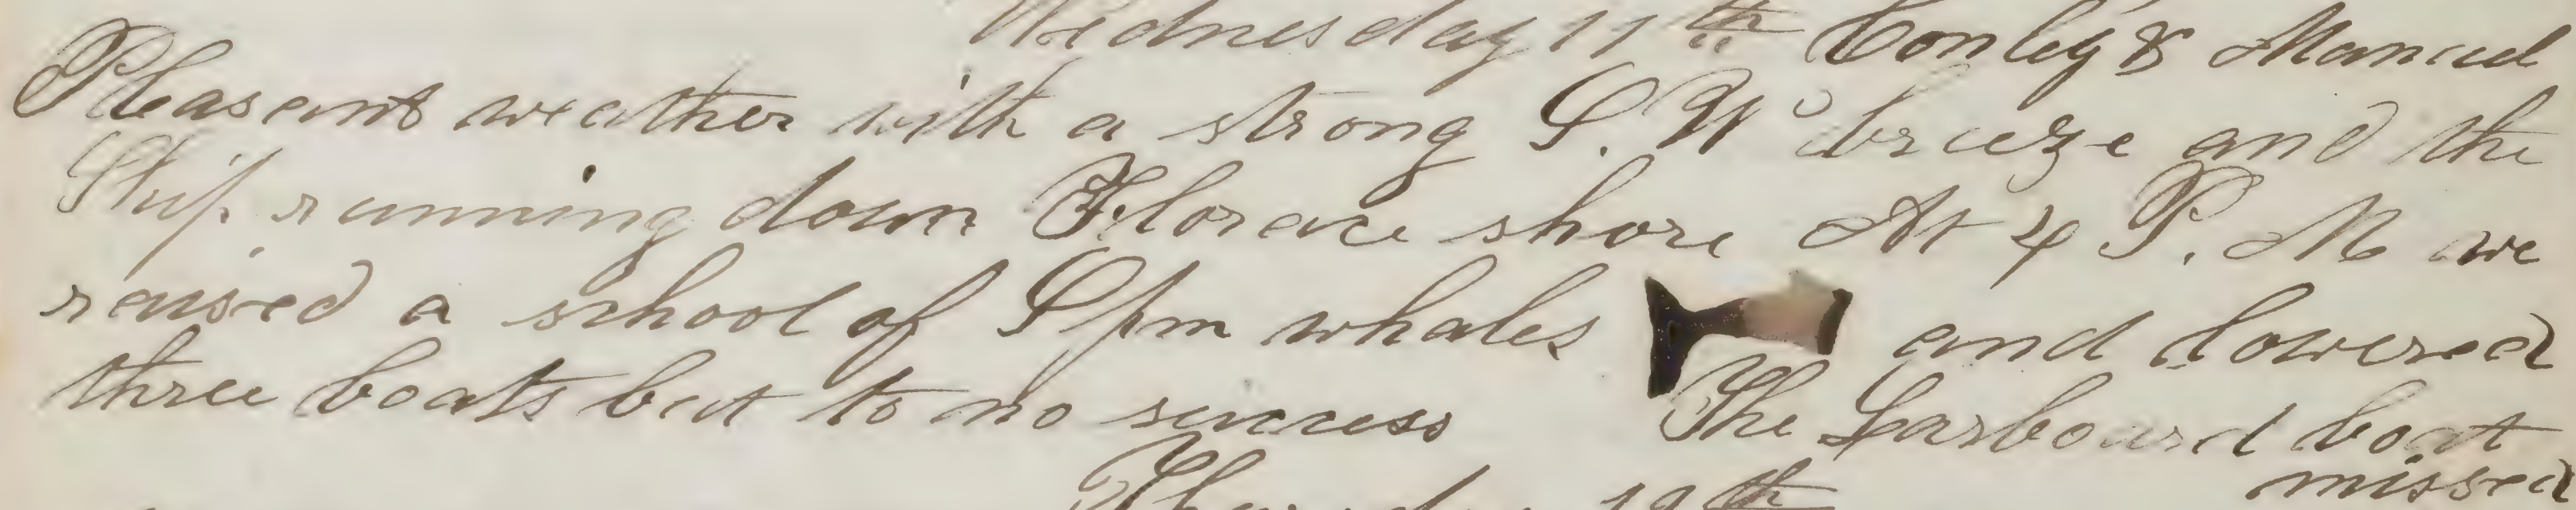 Wednesday 11th Conley & Manuel
Pleasant weather with a strong S. W breeze and the
Ship running down Florence shore At 4 P. M we
raised a school of Spm whales and lowered
three boats but to no success The Larboard boat
missed
Thursday 12th